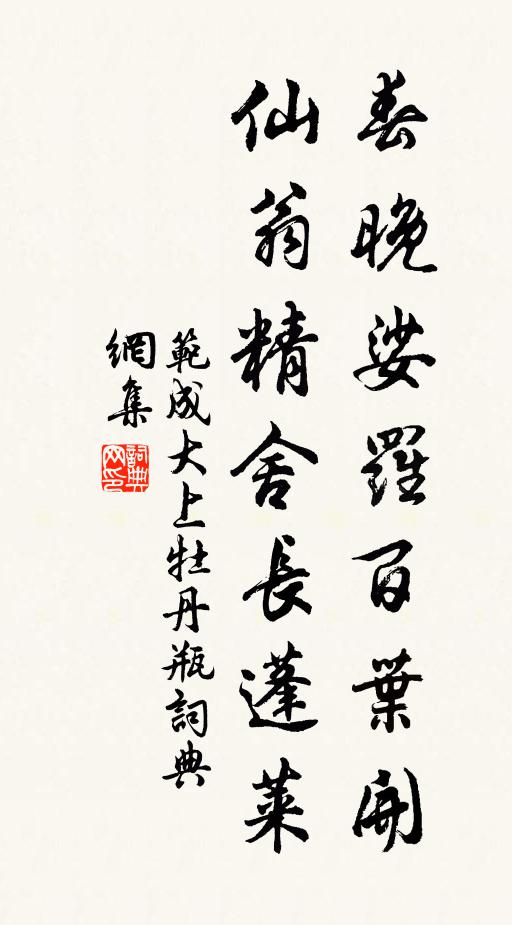 春晚娑羅百葉開
仙翁精舍長蓬萊
範成大上牡丹瓶詞典
網集
詞典
网印